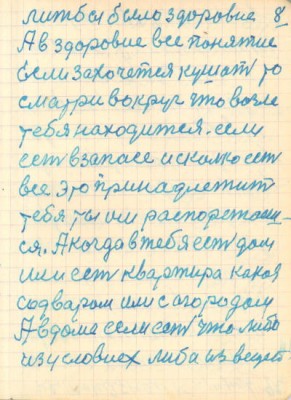 литбы было здоровие 8
А в здоровие все понятие
Если захочется кушат то
сматри вокруг что возле
тебя находится. если
ест взапасе и сколко ест
все это принадлетит
тебя ты им распоретаеш-
ся. А когда втебя ест дом
или ест квартира какая
содваром или согородом
А вдоме если ест что либо
из условиех либа из вещей